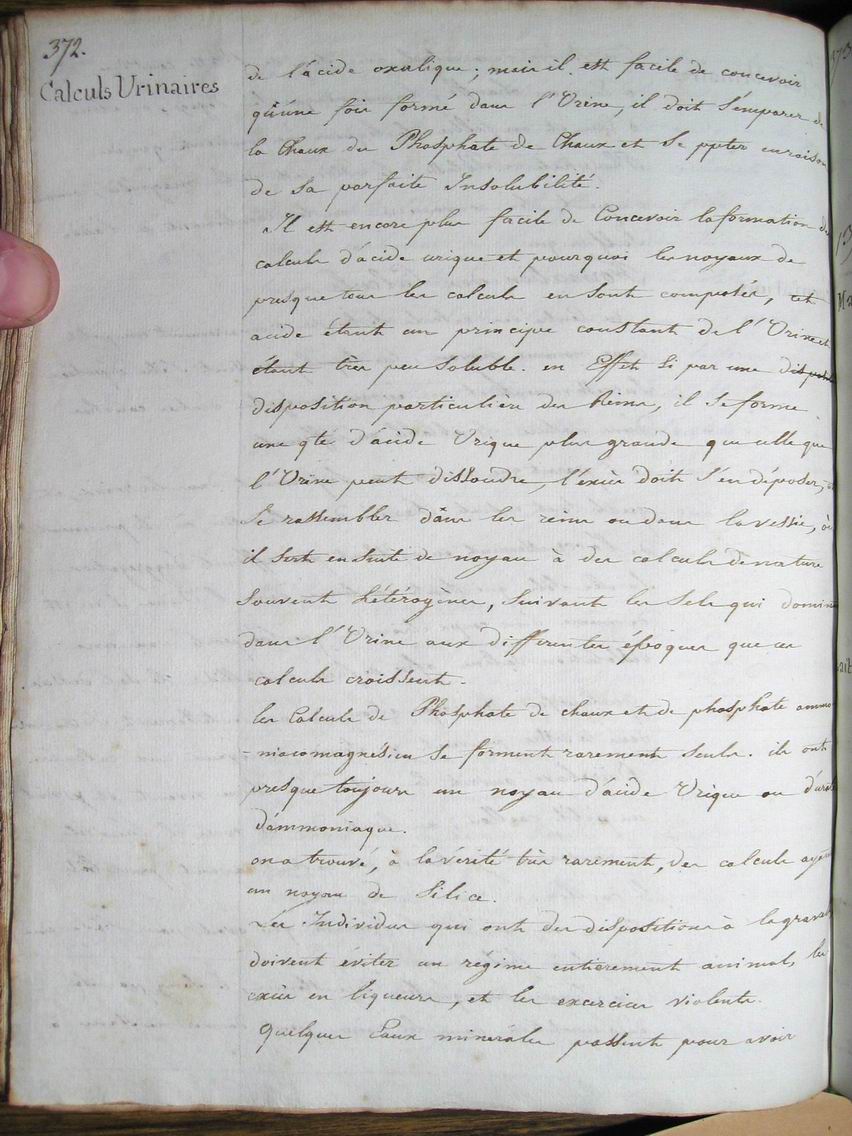 372.
Calculs Urinaires
de l'acide oxalique; mais il est facile de concevoir
qu'une fois formé dans l'Urine, il doit s'emparer de
la Chaux du Phosphate de Chaux et se ppter en raison
de sa parfaite Insolubilité.
Il est encore plus facile de Concevoir la formation des
calculs d'acide urique et pourquoi les noyaux de
presque tous les calculs en sont composés, cet
acide étant un principe constant de l'Urine et
étant très peu soluble. en Effet si par une
disposition particulière des Reins, il se forme
une qté d'acide Urique plus grande que celle que
l'Urine peut dissoudre, l'excès doit s'en déposer,
se rassembler dans les reins ou dans la vessie, où
il sert ensuite de noyau à des calculs de nature
souvent hétérogènes, suivant les sels qui domin
dans l'Urine aux différentes époques que ces
calculs croissent.
les Calculs de Phosphate de chaux et de phosphate ammo
-niaco magnésien se forment rarement seuls. ils ont
presque toujours un noyau d'acide Urique ou d'urate
d'ammoniaque.
on a trouvé, à la vérité très rarement, des calculs ayant
un noyau de Silice.
Les Individus qui ont des dispositions à la gravelle
doivent éviter un régime entierement animal, les
excès en liqueurs, et les exercices violents.
Quelques Eaux minérales passent pour avoir